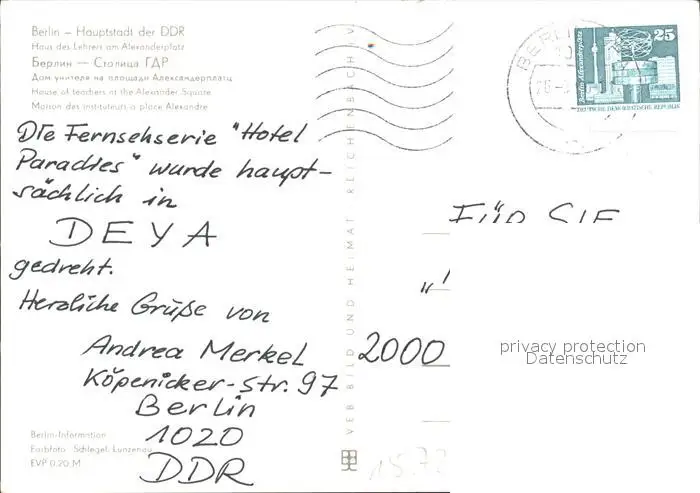 Berlin – Hauptstadt der DDR
Haus des Lehrers am Alexanderplatz
Берлин — Столица ГДР
Дом учителя на площади Александерплатц
House of teachers at the Alexander Square
Maison des instituteurs a place Alexandre
Die Fernsehserie "Hotel
Paradies" wurde haupt-
sächlich in
DEYA
gedreht.
Herzliche Grüße von
Andrea Merkel
Köpenicker-Str. 97
Berlin
1020
DDR
Berlin-Information
Farbfoto: Schlegel, Lunzenau
EVP 0,20 M
VEB BILD UND HEIMAT REICHENBACH V
BERLIN
25
Berlin, Alexanderplatz
DEUTSCHE DEMOKRATISCHE REPUBLIK
FÜR SIE
2000
privacy protection
Datenschutz